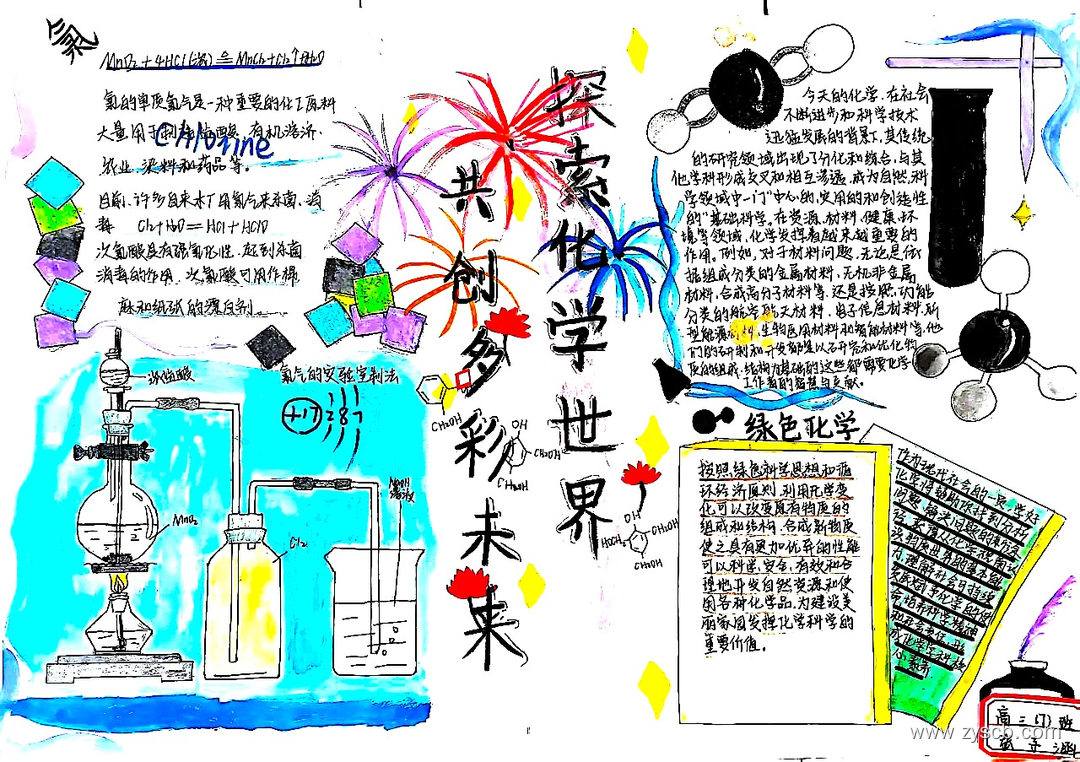 氯
MnO₂+4HCl(浓)≜MnCl₂+Cl₂↑+2H₂O
氯的单质氯气是一种重要的化工原料
大量用于制造盐酸、有机溶济、
农业、染料和药品等。
Chlorine
目前,许多自来水厂用氯气来杀菌、消
毒 Cl₂+H₂O=HCl+HClO
次氯酸具有强氧化性,起到杀菌
消毒的作用,次氯酸可用作棉
麻和纸张的漂白剂。
浓盐酸
氯气的实验室制法
+17 2 8 7
MnO₂
Cl₂
NaOH
溶液
探索化学世界
共创多彩未来
CH₂OH
OH
CH₂OH
CH₂OH
OH
HOCH₂
CH₂OH
CH₂OH
今天的化学,在社会
不断进步和科学技术
迅猛发展的背景下,其传统
的研究领域出现了分化和综合,与其
他学科形成交叉和相互渗透,成为自然科
学领域中一门"中心的,实用的和创造性
的"基础科学,在资源、材料、健康、环
境等领域,化学发挥着越来越重要的
作用,例如,对于材料问题,无论是依
据组成分类的金属材料、无机非金属
材料、合成高分子材料等,还是按照功能
分类的能源材料、电子信息材料、新
型能源材料、生物医用材料和智能材料等,他
们的研制和开发都是以研究和优化物
质的组成、结构为基础的,这些都需要化学
工作者的智慧与贡献。
绿色化学
按照绿色科学思想和循
环经济原则,利用化学变
化可以改变原有物质的
组成和结构,合成新物质
使之具有更加优异的性能
可以科学、安全、有效和合
理地开发自然资源和使
用各种化学品,为建设美
丽家园发挥化学科学的
重要价值。
作为现代社会的一员,学好
化学
高二(7)班
www.zyscb.com